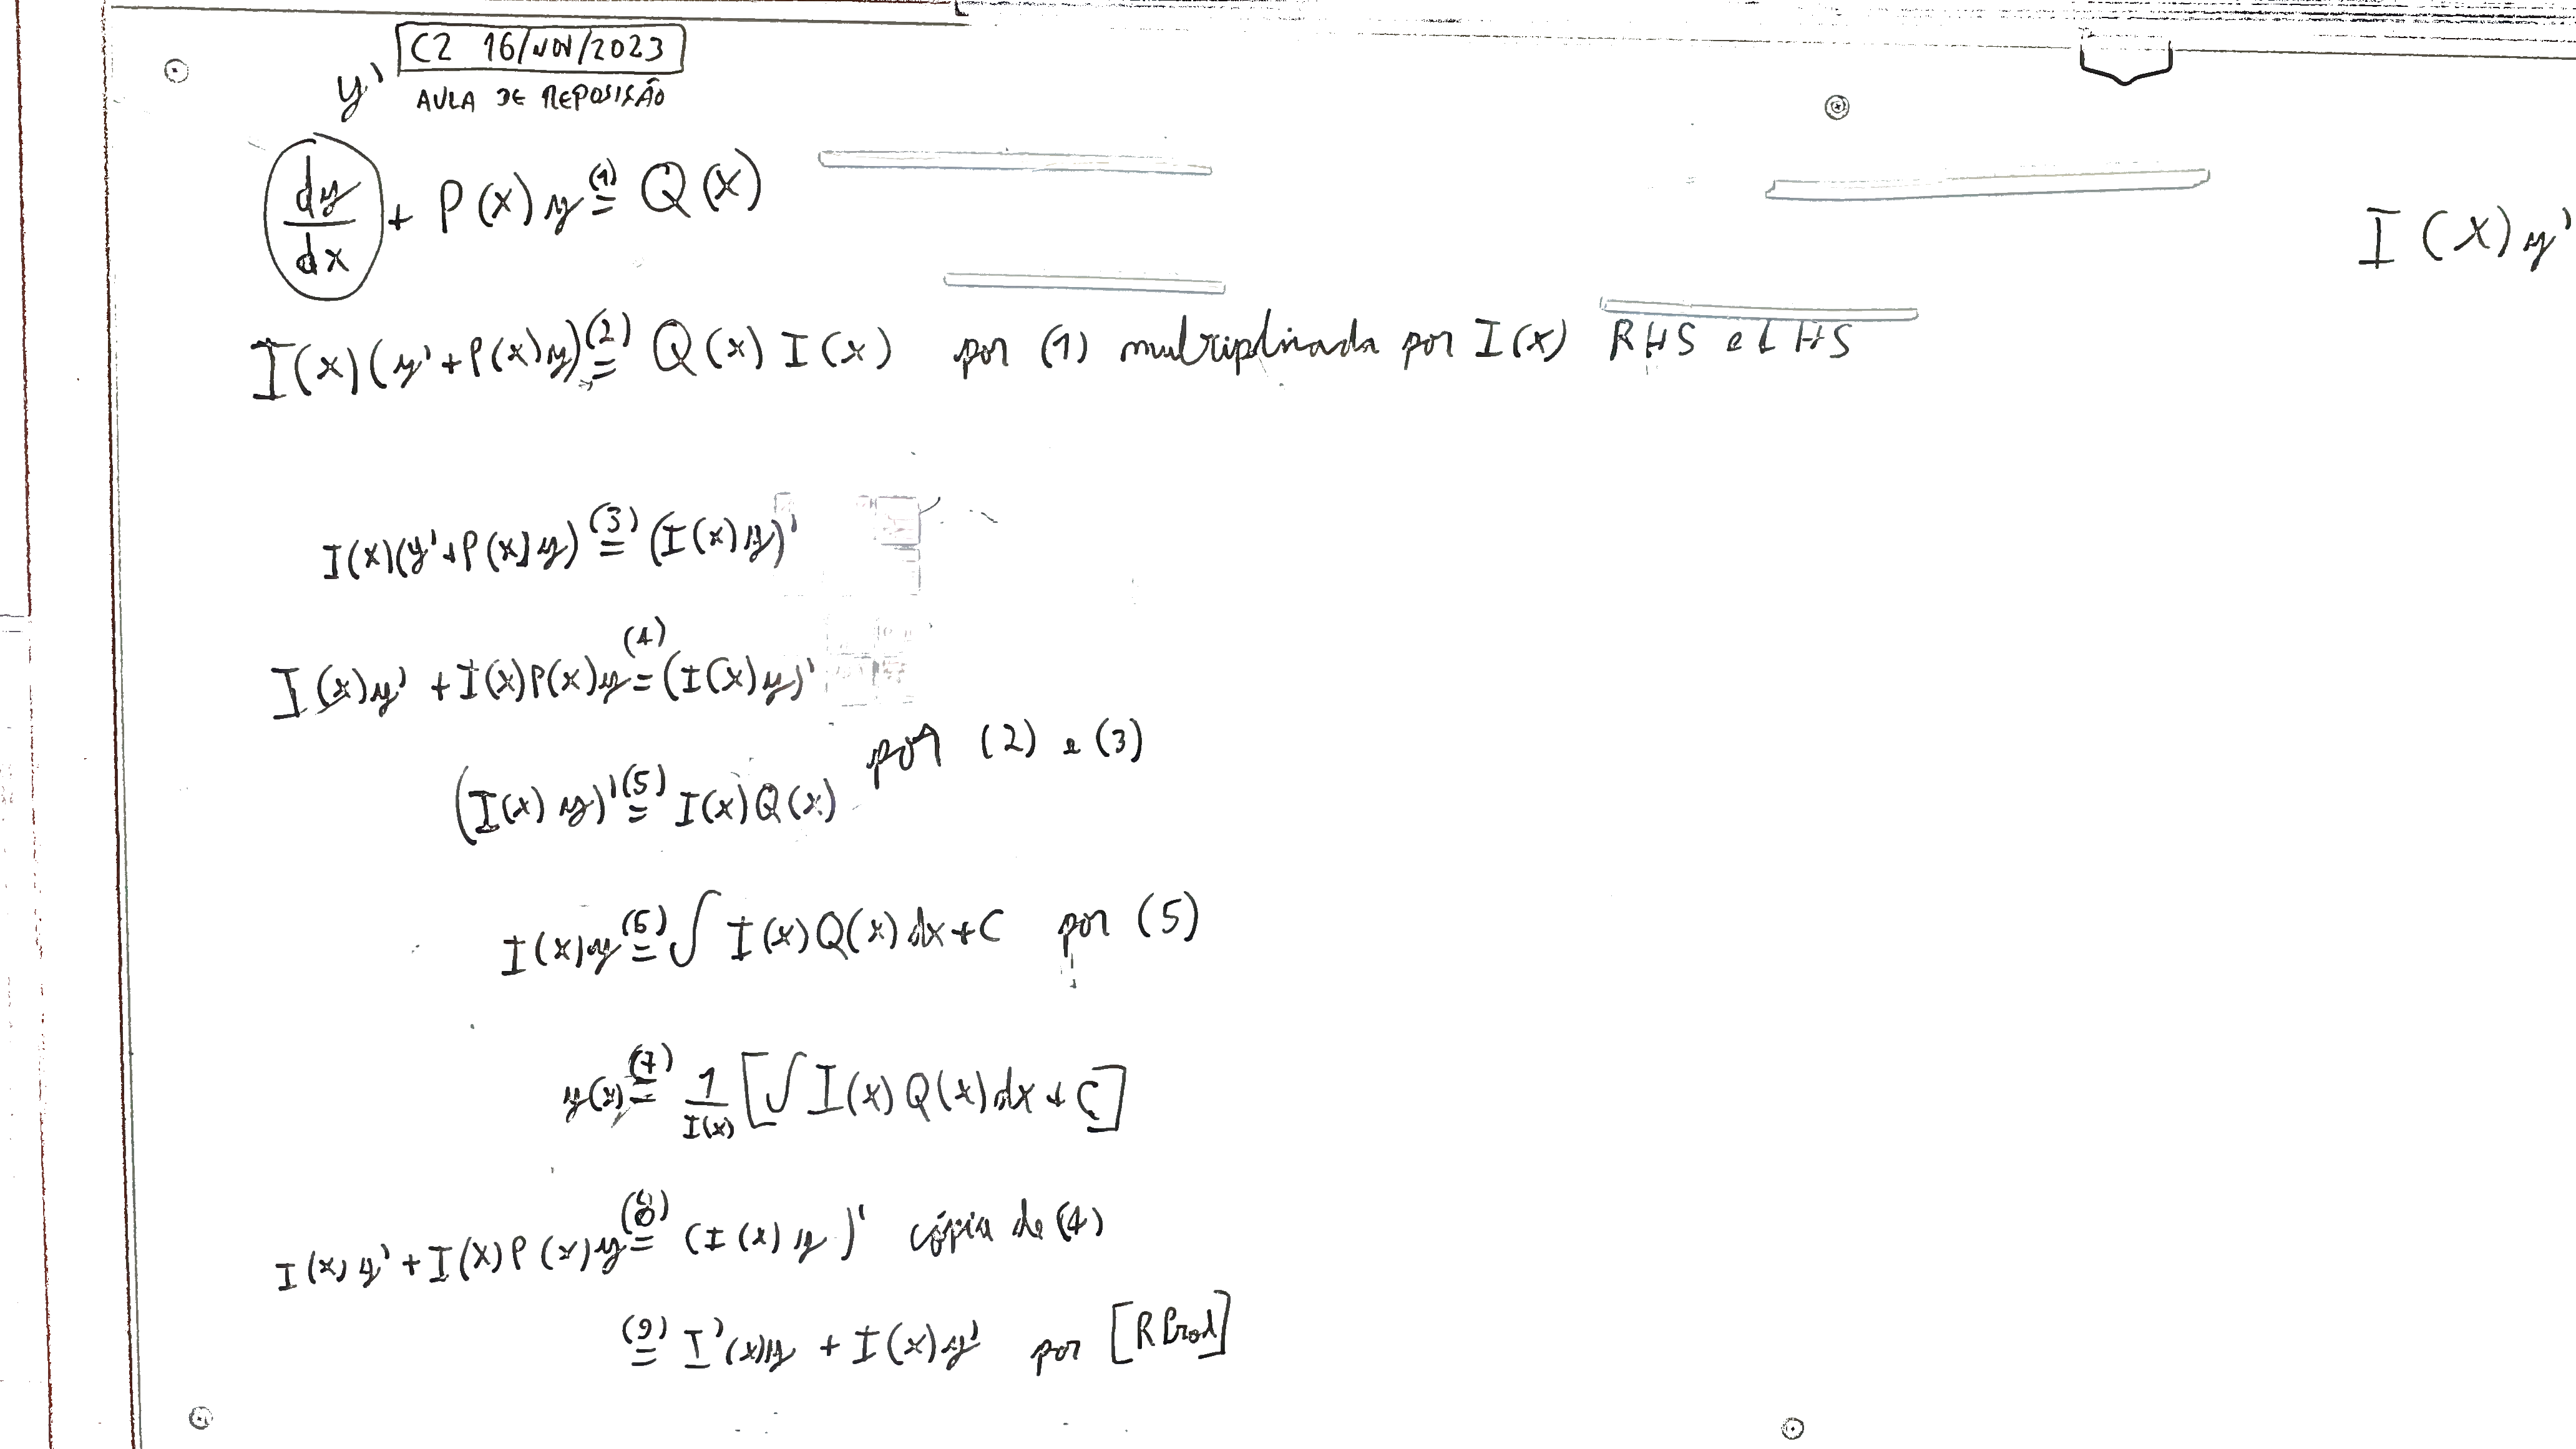 C2 16/NOV/2023
AULA DE REPOSIÇÃO
y'
dy/dx + P(x)y (1)= Q(x)
I(x)y'
I(x)(y'+P(x)y) (2)= Q(x) I(x) por (1) multiplicada por I(x) RHS e LHS
I(x)(y'+P(x)y) (3)= (I(x)y)'
I(x)y' + I(x)P(x)y (4)= (I(x)y)'
por (2) e (3)
(I(x)y)' (5)= I(x)Q(x)
I(x)y (6)= ∫ I(x)Q(x)dx+C por (5)
y(x) (7)= 1/I(x) [∫ I(x)Q(x)dx + C]
I(x)y' + I(x)P(x)y (8)= (I(x)y)' cópia de (4)
(9)= I'(x)y + I(x)y' por [RProd]